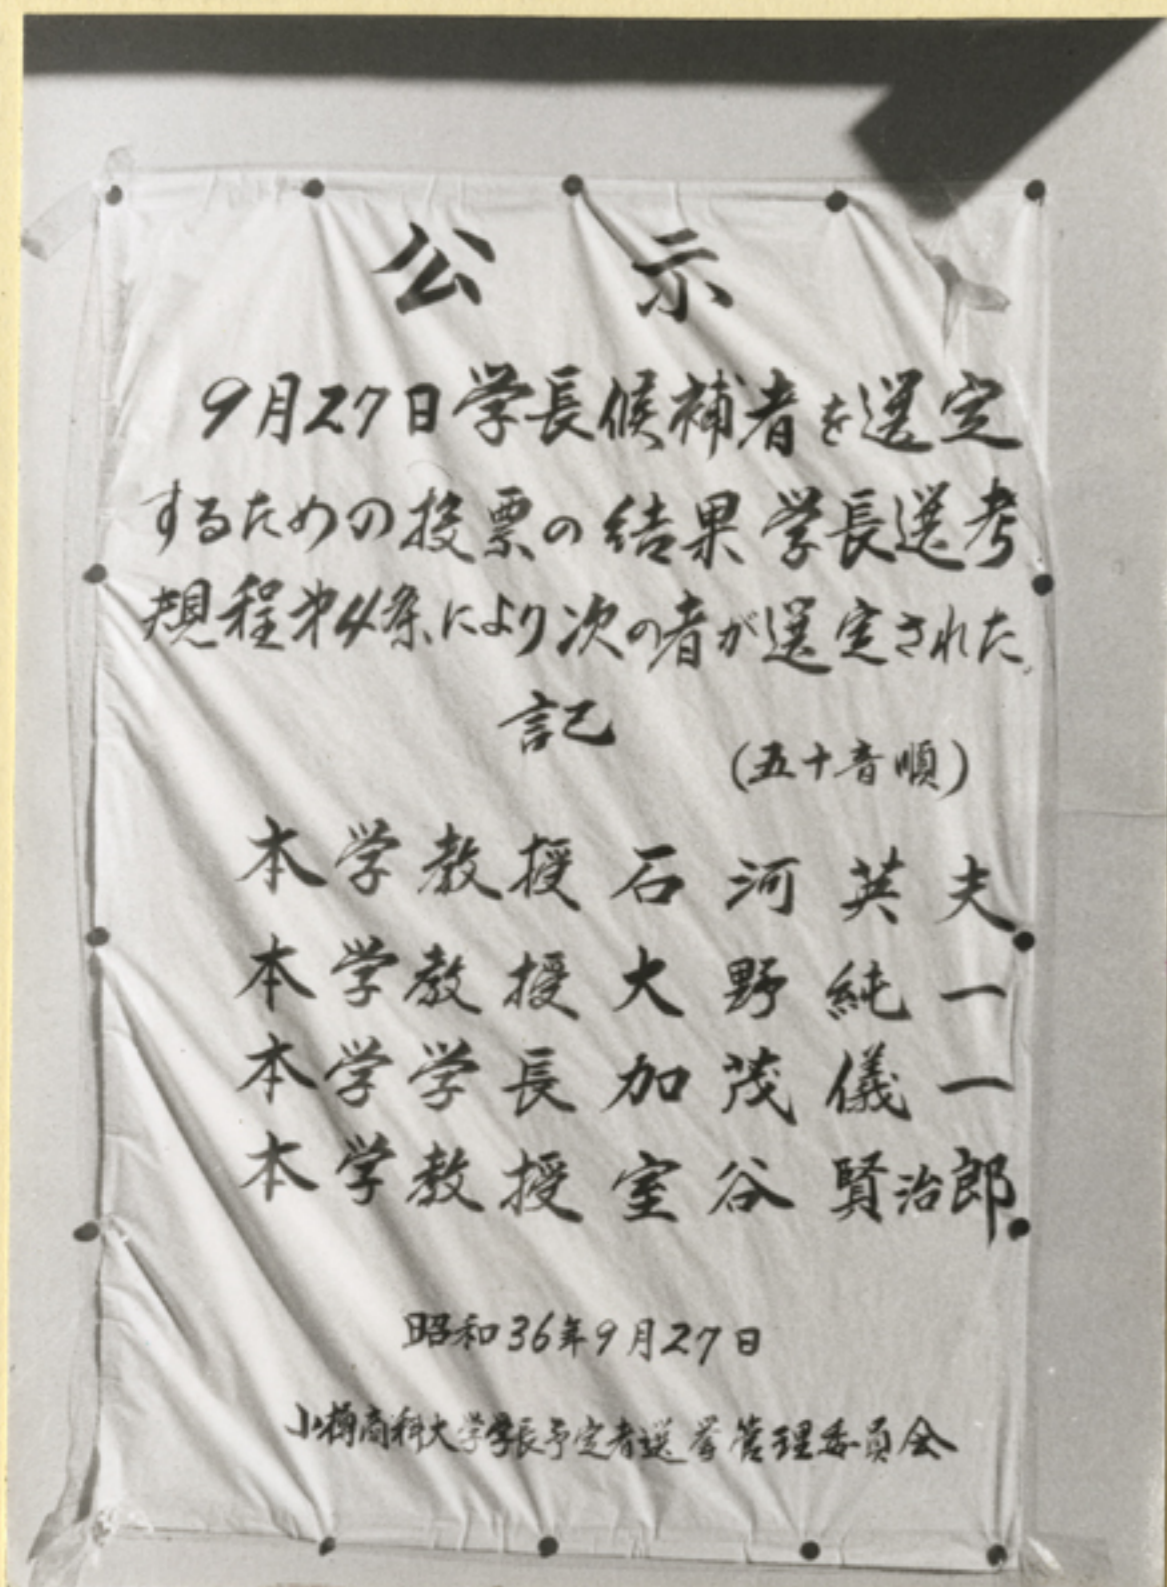 公示
9月27日学長候補者を選定
するための投票の結果学長選考
規程第4条により次の者が選定された。
記
(五十音順)
本学教授石河英夫
本学教授大野純一
本学学長加茂儀一
本学教授室谷賢治郎
昭和36年9月27日
小樽商科大学学長予定者選挙管理委員会